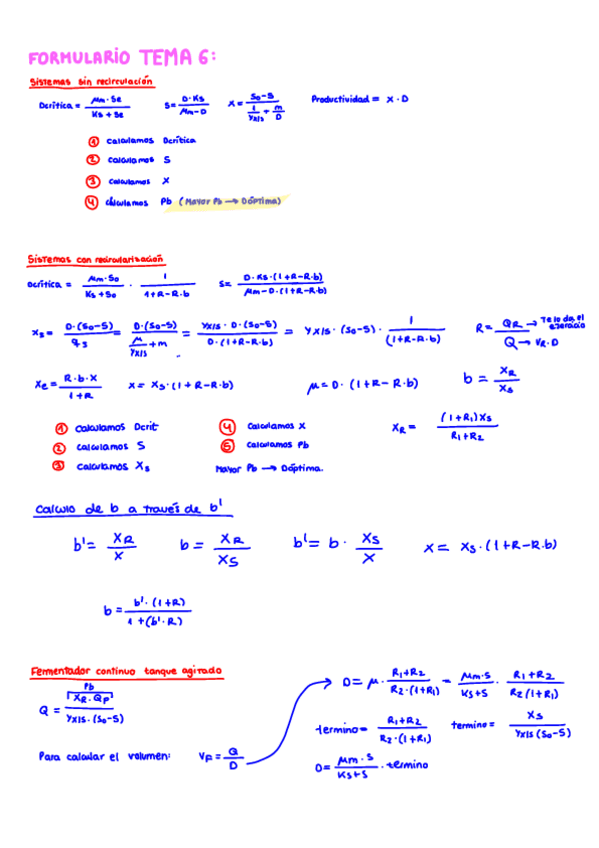 FORMULARIO TEMA 6:
Sistemas sin recirculación
Dcrítica = μm·Se / (Ks + Se)   S = D·Ks / (μm-D)   X = (S0-S) / (1/Yx/s + m/D)   Productividad = X · D
1 Calculamos Dcrítica
2 Calculamos S
3 Calculamos X
4 Cálculamos Pb (Mayor Pb → Dóptima)
Sistemas con recircularización
Dcrítica = μm·S0 / (Ks+S0) · 1 / (1+R-R·b)   S = D·Ks·(1+R-R·b) / (μm-D·(1+R-R·b))
Xs = D·(S0-S) / qs = D·(S0-S) / (μ/Yx/s + m) = Yx/s · D·(S0-S) / (D·(1+R-R·b)) = Yx/s · (S0-S) · 1 / (1+R-R·b)   R = QR / Q → Te lo da el ejercicio → VR·D
Xe = R·b·X / (1+R)   X = Xs·(1+R-R·b)   μ = D·(1+R-R·b)   b = XR / Xs
1 Calculamos Dcrit   4 Calculamos X   XR = (1+R1)Xs / (R1+R2)
2 Calculamos S   5 Calculamos Pb
3 Calculamos Xs   Mayor Pb → Dóptima.
Calculo de b a través de b'
b' = XR / X   b = XR / XS   b' = b · XS / X   X = XS·(1+R-R·b)
b = b'·(1+R) / (1+(b'·R))
Fermentador continuo tanque agitado
Pb
Q = XR·QP / (Yx/s·(S0-S))   D = μ · (R1+R2) / (R2·(1+R1)) = μm·S / (Ks+S) · (R1+R2) / (R2(1+R1))
termino = (R1+R2) / (R2·(1+R1))   termino = Xs / (Yx/s(S0-S))
Para calcular el volumen: VF = Q / D   D = μm·S / (Ks+S) · termino